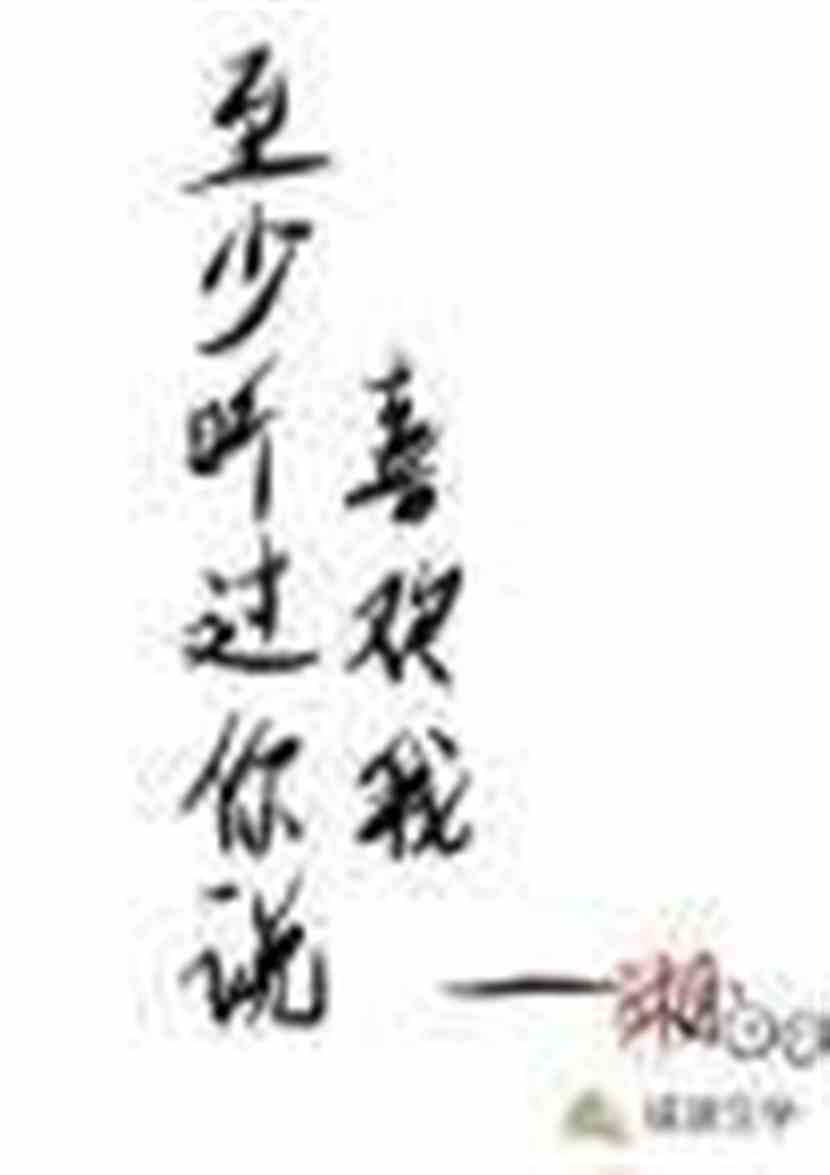 至少听过你说
喜欢我
——湘